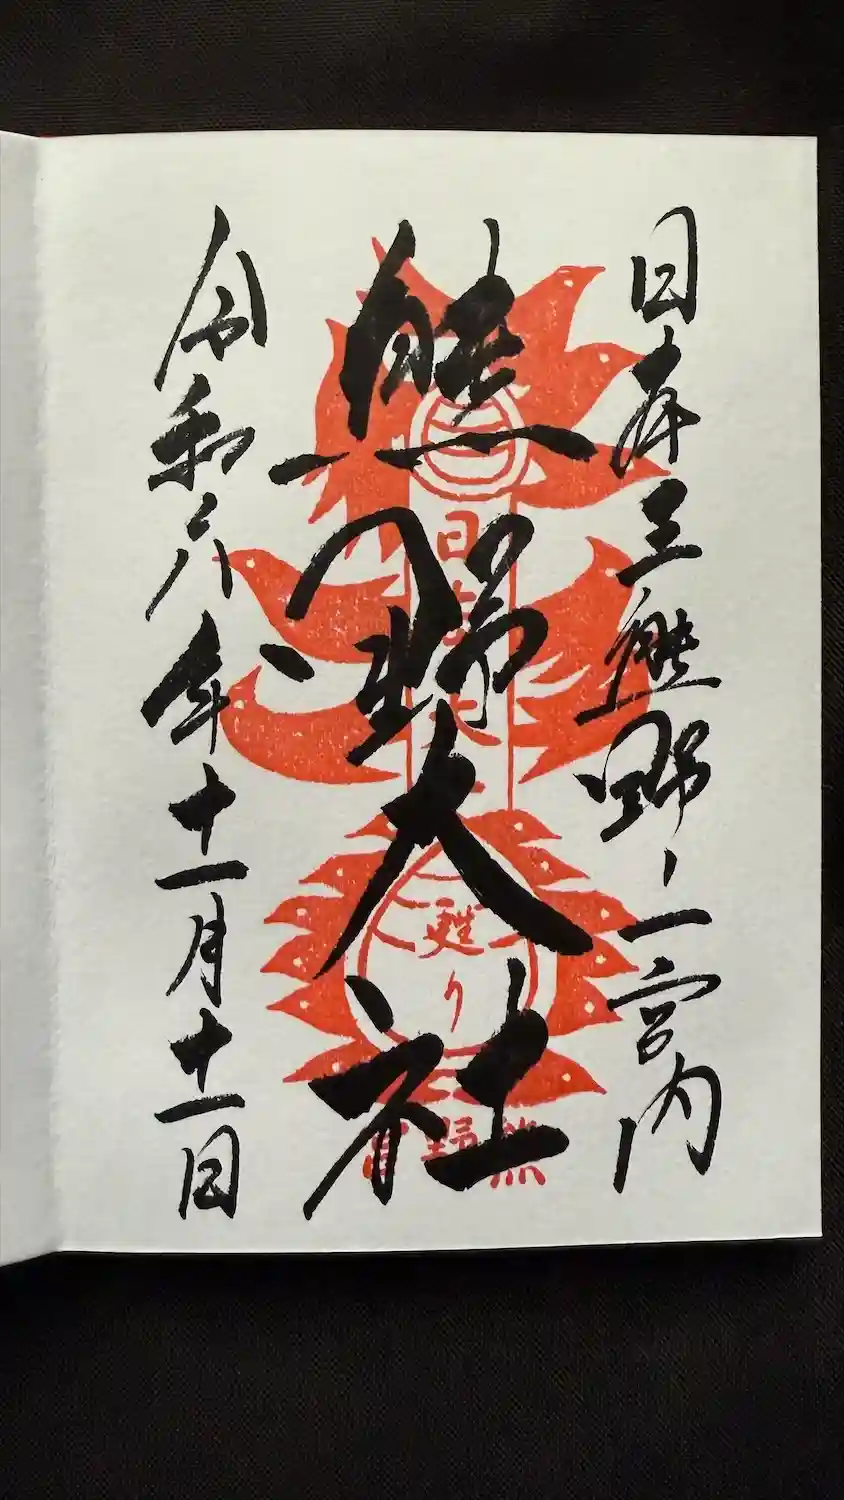 日本三熊野ノ一宮内
熊野大社
令和六年十一月十一日
日本
大
甦り
熊野宮